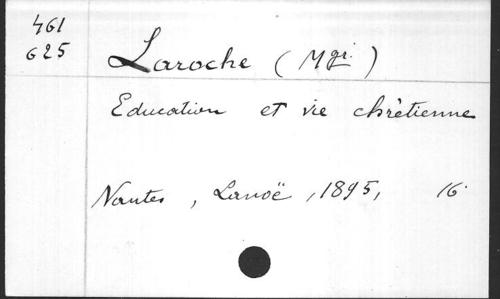 461
625
Laroche (Mgr.)
Education et vie chrétienne
Nantes, Lanoë, 1895, 16°